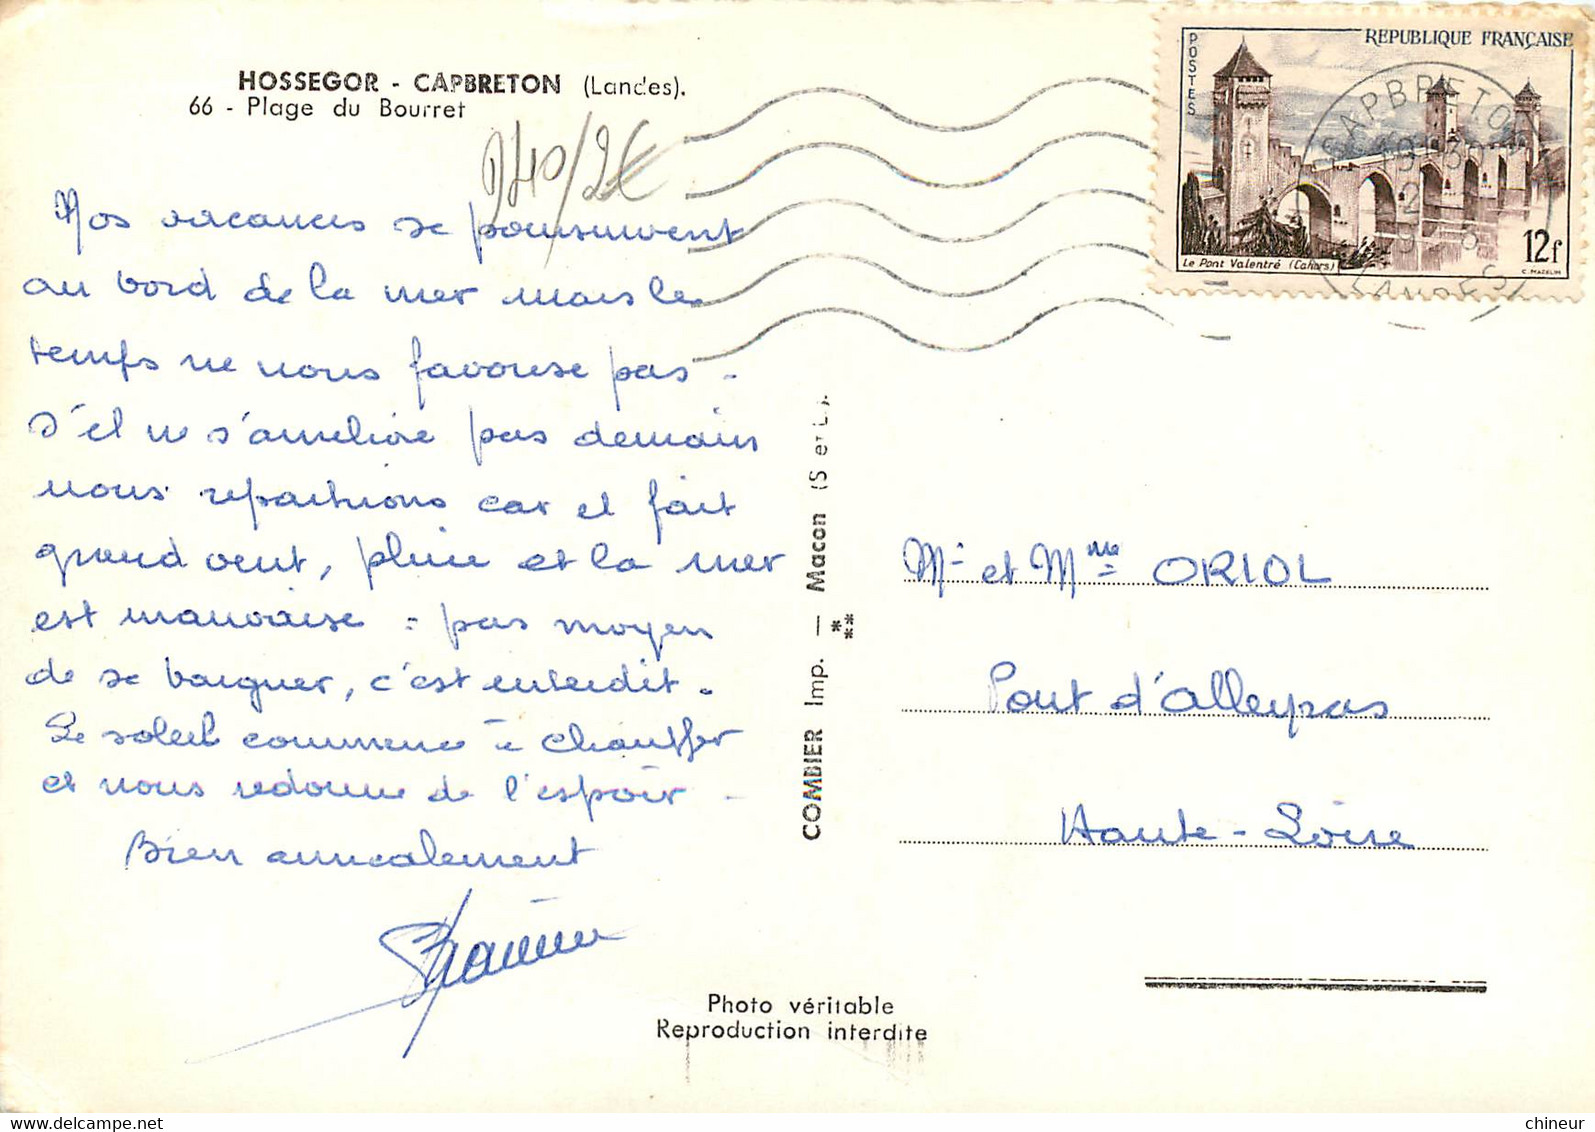 HOSSEGOR - CAPBRETON (Landes).
66 - Plage du Bourret
240/2€
Nos vacances se poursuivent
au bord de la mer mais le
temps ne nous favorise pas -
S'il ne s'améliore pas demain
nous repartirons car il fait
grand vent, pluie et la mer
est mauvaise - pas moyen
de se baigner, c'est interdit.
Le soleil commence à chauffer
et nous redonne de l'espoir -
Bien amicalement
COMBIER Imp. — Macon (S et L).
POSTES
REPUBLIQUE FRANÇAISE
Le Pont Valentré (Cahors)
12f
C. MAZELIN
CAPBRETON
LANDES
Mr et Mme ORIOL
Pont d'alleyras
Haute-Loire
Photo véritable
Reproduction interdite
chineur